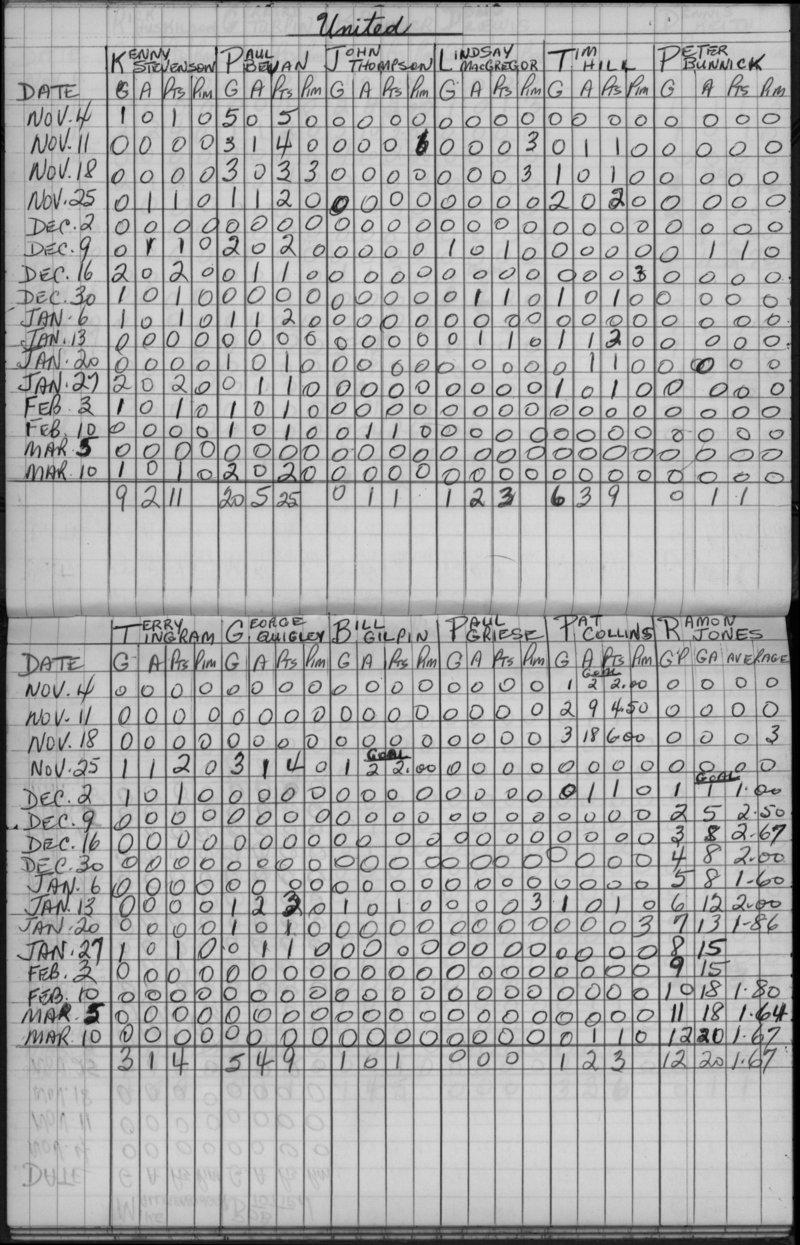 United
KENNY PAUL JOHN LINDSAY TIM PETER
STEVENSON BEVAN THOMPSON MACGREGOR HILL BUNNICK
DATE G A Pts Pim G A Pts Pim G A Pts Pim G A Pts Pim G A Pts Pim G A Pts Pim
NOV. 4 1 0 1 0 5 0 5 0 0 0 0 0 0 0 0 0 0 0 0 0 0 0 0 0
NOV. 11 0 0 0 0 3 1 4 0 0 0 0 6 0 0 0 3 0 1 1 0 0 0 0 0
NOV. 18 0 0 0 0 3 0 3 3 0 0 0 0 0 0 0 3 1 0 1 0 0 0 0 0
NOV. 25 0 1 1 0 1 1 2 0 0 0 0 0 0 0 0 0 2 0 2 0 0 0 0 0
DEC. 2 0 0 0 0 0 0 0 0 0 0 0 0 0 0 0 0 0 0 0 0 0 0 0 0
DEC. 9 0 1 1 0 2 0 2 0 0 0 0 0 1 0 1 0 0 0 0 0 0 1 1 0
DEC. 16 2 0 2 0 0 1 1 0 0 0 0 0 0 0 0 0 0 0 0 3 0 0 0 0
DEC. 30 1 0 1 0 0 0 0 0 0 0 0 0 0 1 1 0 1 0 1 0 0 0 0 0
JAN. 6 1 0 1 0 1 1 2 0 0 0 0 0 0 0 0 0 0 0 0 0 0 0 0 0
JAN. 13 0 0 0 0 0 0 0 0 0 0 0 0 0 1 1 0 1 1 2 0 0 0 0 0
JAN. 20 0 0 0 0 1 0 1 0 0 0 0 0 0 0 0 0 0 1 1 0 0 0 0 0
JAN. 27 2 0 2 0 0 1 1 0 0 0 0 0 0 0 0 0 1 0 1 0 0 0 0 0
FEB. 3 1 0 1 0 1 0 1 0 0 0 0 0 0 0 0 0 0 0 0 0 0 0 0 0
FEB. 10 0 0 0 0 1 0 1 0 0 1 1 0 0 0 0 0 0 0 0 0 0 0 0 0
MAR 5 0 0 0 0 0 0 0 0 0 0 0 0 0 0 0 0 0 0 0 0 0 0 0 0
MAR. 10 1 0 1 0 2 0 2 0 0 0 0 0 0 0 0 0 0 0 0 0 0 0 0 0
9 2 11 20 5 25 0 1 1 1 2 3 6 3 9 0 1 1
TERRY GEORGE BILL PAUL PAT RAMON
INGRAM QUIGLEY GILPIN GRIESE COLLINS JONES
DATE G A Pts Pim G A Pts Pim G A Pts Pim G A Pts Pim G A Pts Pim GP GA AVERAGE
GOAL
NOV. 4 0 0 0 0 0 0 0 0 0 0 0 0 0 0 0 0 1 2 2.00 0 0 0 0
NOV. 11 0 0 0 0 0 0 0 0 0 0 0 0 0 0 0 0 2 9 4.50 0 0 0 0
NOV. 18 0 0 0 0 0 0 0 0 0 0 0 0 0 0 0 0 3 18 6.00 0 0 0 3
GOAL
NOV. 25 1 1 2 0 3 1 4 0 1 2 2.00 0 0 0 0 0 0 0 0 0 0 0 0
GOAL
DEC. 2 1 0 1 0 0 0 0 0 0 0 0 0 0 0 0 0 0 1 1 0 1 1 1.00
DEC. 9 0 0 0 0 0 0 0 0 0 0 0 0 0 0 0 0 0 0 0 0 2 5 2.50
DEC. 16 0 0 0 0 0 0 0 0 0 0 0 0 0 0 0 0 0 0 0 0 3 8 2.67
DEC. 30 0 0 0 0 0 0 0 0 0 0 0 0 0 0 0 0 0 0 0 0 4 8 2.00
JAN. 6 0 0 0 0 0 0 0 0 0 0 0 0 0 0 0 0 0 0 0 0 5 8 1.60
JAN. 13 0 0 0 0 1 2 3 0 1 0 1 0 0 0 0 3 1 0 1 0 6 12 2.00
JAN. 20 0 0 0 0 1 0 1 0 0 0 0 0 0 0 0 0 0 0 0 3 7 13 1.86
JAN. 27 1 0 1 0 0 1 1 0 0 0 0 0 0 0 0 0 0 0 0 0 8 15
FEB. 3 0 0 0 0 0 0 0 0 0 0 0 0 0 0 0 0 0 0 0 0 9 15
FEB. 10 0 0 0 0 0 0 0 0 0 0 0 0 0 0 0 0 0 0 0 0 10 18 1.80
MAR. 5 0 0 0 0 0 0 0 0 0 0 0 0 0 0 0 0 0 0 0 0 11 18 1.64
MAR. 10 0 0 0 0 0 0 0 0 0 0 0 0 0 0 0 0 0 1 1 0 12 20 1.67
3 1 4 5 4 9 1 0 1 0 0 0 1 2 3 12 20 1.67